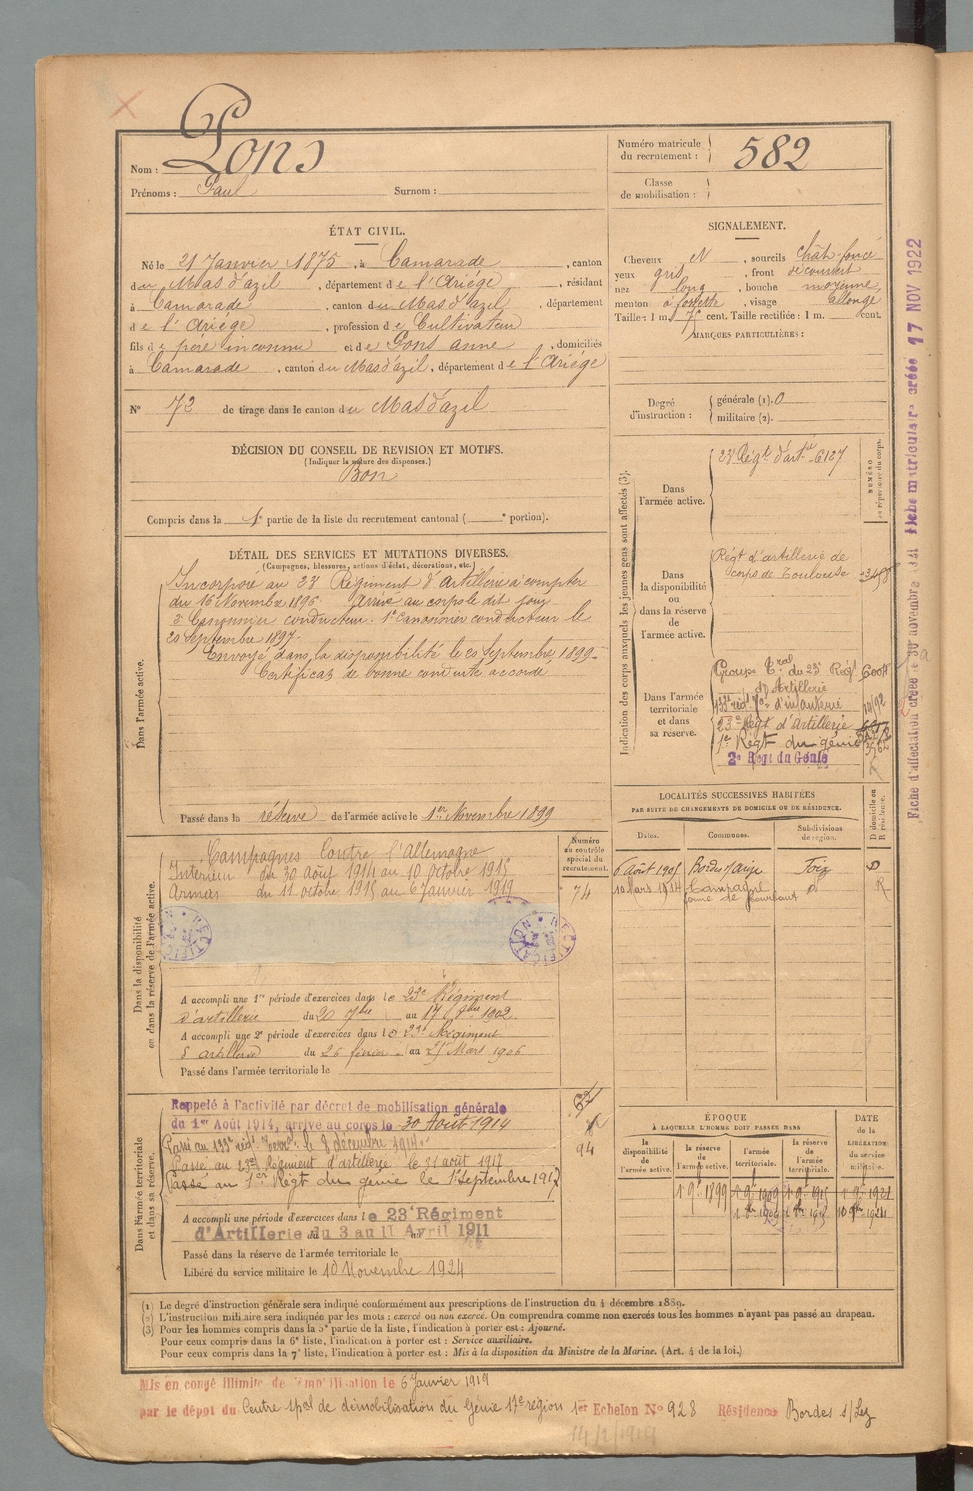 Nom : Pons
Prénoms : Paul Surnom :
Numéro matricule du recrutement : 582
Classe de mobilisation :
ÉTAT CIVIL.
Né le 21 Janvier 1875, à Camarade, canton
du Mas d'azil, département de l'Ariége, résidant
à Camarade, canton du Mas d'azil, département
de l'Ariége, profession de Cultivateur
fils de père inconnu et de Pons anne, domiciliés
à Camarade, canton du Mas d'azil, département de l'Ariége
N° 72 de tirage dans le canton du Mas d'azil
SIGNALEMENT.
Cheveux N, sourcils Chât-foncé
yeux gris, front découvert
nez long, bouche moyenne,
menton à fossette, visage allongé
Taille : 1 m. cent. Taille rectifiée : 1 m. cent.
MARQUES PARTICULIÈRES :
Degré d'instruction : générale (1). 0
militaire (2).
DÉCISION DU CONSEIL DE REVISION ET MOTIFS.
(Indiquer la nature des dispenses.)
Bon
Compris dans la 1e partie de la liste du recrutement cantonal ( e portion).
DÉTAIL DES SERVICES ET MUTATIONS DIVERSES.
(Campagnes, blessures, actions d'éclat, décorations, etc.)
Dans l'armée active.
Incorporé au 23e Régiment d'artillerie à compter
du 16 Novembre 1896. Arrivé au corps le dit jour
2e Canonnier conducteur. 1er Canonnier conducteur le
20 Septembre 1897.
Envoyé dans la disponibilité le 20 Septembre 1899-
Certificat de bonne conduite accordé
Passé dans la réserve de l'armée active le 1er Novembre 1899
Indication des corps auxquels les jeunes gens sont affectés (3).
NUMÉRO au répertoire du corps.
Dans l'armée active.
23e Régt d'artie 6127
Dans la disponibilité ou dans la réserve de l'armée active.
Regt d'artillerie de
corps de Toulouse
Dans l'armée territoriale et dans sa réserve.
Groupe Tral du 23e Régt
d'Artillerie
133e régt Tal d'infanterie
23e Régt d'Artillerie
1er Régt du génie
2e Régt du Génie
LOCALITÉS SUCCESSIVES HABITÉES
PAR SUITE DE CHANGEMENTS DE DOMICILE OU DE RÉSIDENCE.
Dates. Communes. Subdivisions de région. D domicile ou R résidence.
6 août 1905 Foix D
Campagne R
Dans la disponibilité ou dans la réserve de l'armée active.
Numéro au contrôle spécial du recrutement.
74
Campagnes Contre l'Allemagne
Intérieur du 30 août 1914 au 10 octobre 1915
Armées du 11 octobre 1915 au 6 Janvier 1919
RECTIFICATION
RECTIFICATION
A accompli une 1re période d'exercices dans le 23e Régiment
d'artillerie du 20 7bre au 17 8bre 1902.
A accompli une 2e période d'exercices dans le 23e Régiment
d'artillerie du 26 février au 25 Mars 1906
Passé dans l'armée territoriale le
Dans l'armée territoriale et dans sa réserve.
Rappelé à l'activité par décret de mobilisation générale
du 1er Août 1914, arrivé au corps le 30 Août 1914
Passé au 133e régt Terral le 8 décembre 1914.
Passé au 23e Régiment d'artillerie le 21 août 1917
Passé au 1er Régt du génie le 1er Septembre 1917
94
A accompli une période d'exercices dans le 23e Régiment
d'Artillerie du 3 au 11 Avril 1911
Passé dans la réserve de l'armée territoriale le
Libéré du service militaire le 10 Novembre 1924
ÉPOQUE
À LAQUELLE L'HOMME DOIT PASSER DANS
la disponibilité de l'armée active. la réserve de l'armée active. l'armée territoriale. la réserve de l'armée territoriale. DATE de la LIBÉRATION du service militaire.
1 9e 1899 1 9e 1909 1 9e 1915 1 9e 1921
(1) Le degré d'instruction générale sera indiqué conformément aux prescriptions de l'instruction du 4 décembre 1889.
(2) L'instruction militaire sera indiquée par les mots : exercé ou non exercé. On comprendra comme non exercés tous les hommes n'ayant pas passé au drapeau.
(3) Pour les hommes compris dans la 5e partie de la liste, l'indication à porter est : Ajourné.
Pour ceux compris dans la 6e liste, l'indication à porter est : Service auxiliaire.
Pour ceux compris dans la 7e liste, l'indication à porter est : Mis à la disposition du Ministre de la Marine. (Art. 4 de la loi.)
Mis en congé illimité de démobilisation le 6 Janvier 1919
par le dépôt du Centre spal de démobilisation du Génie 17e région 1er Echelon N° 928 Résidence Bordes s/Lez
14/2/1919
Fiche d'affectation créée le 30 novembre Fiche matriculaire créée 17 NOV 1922